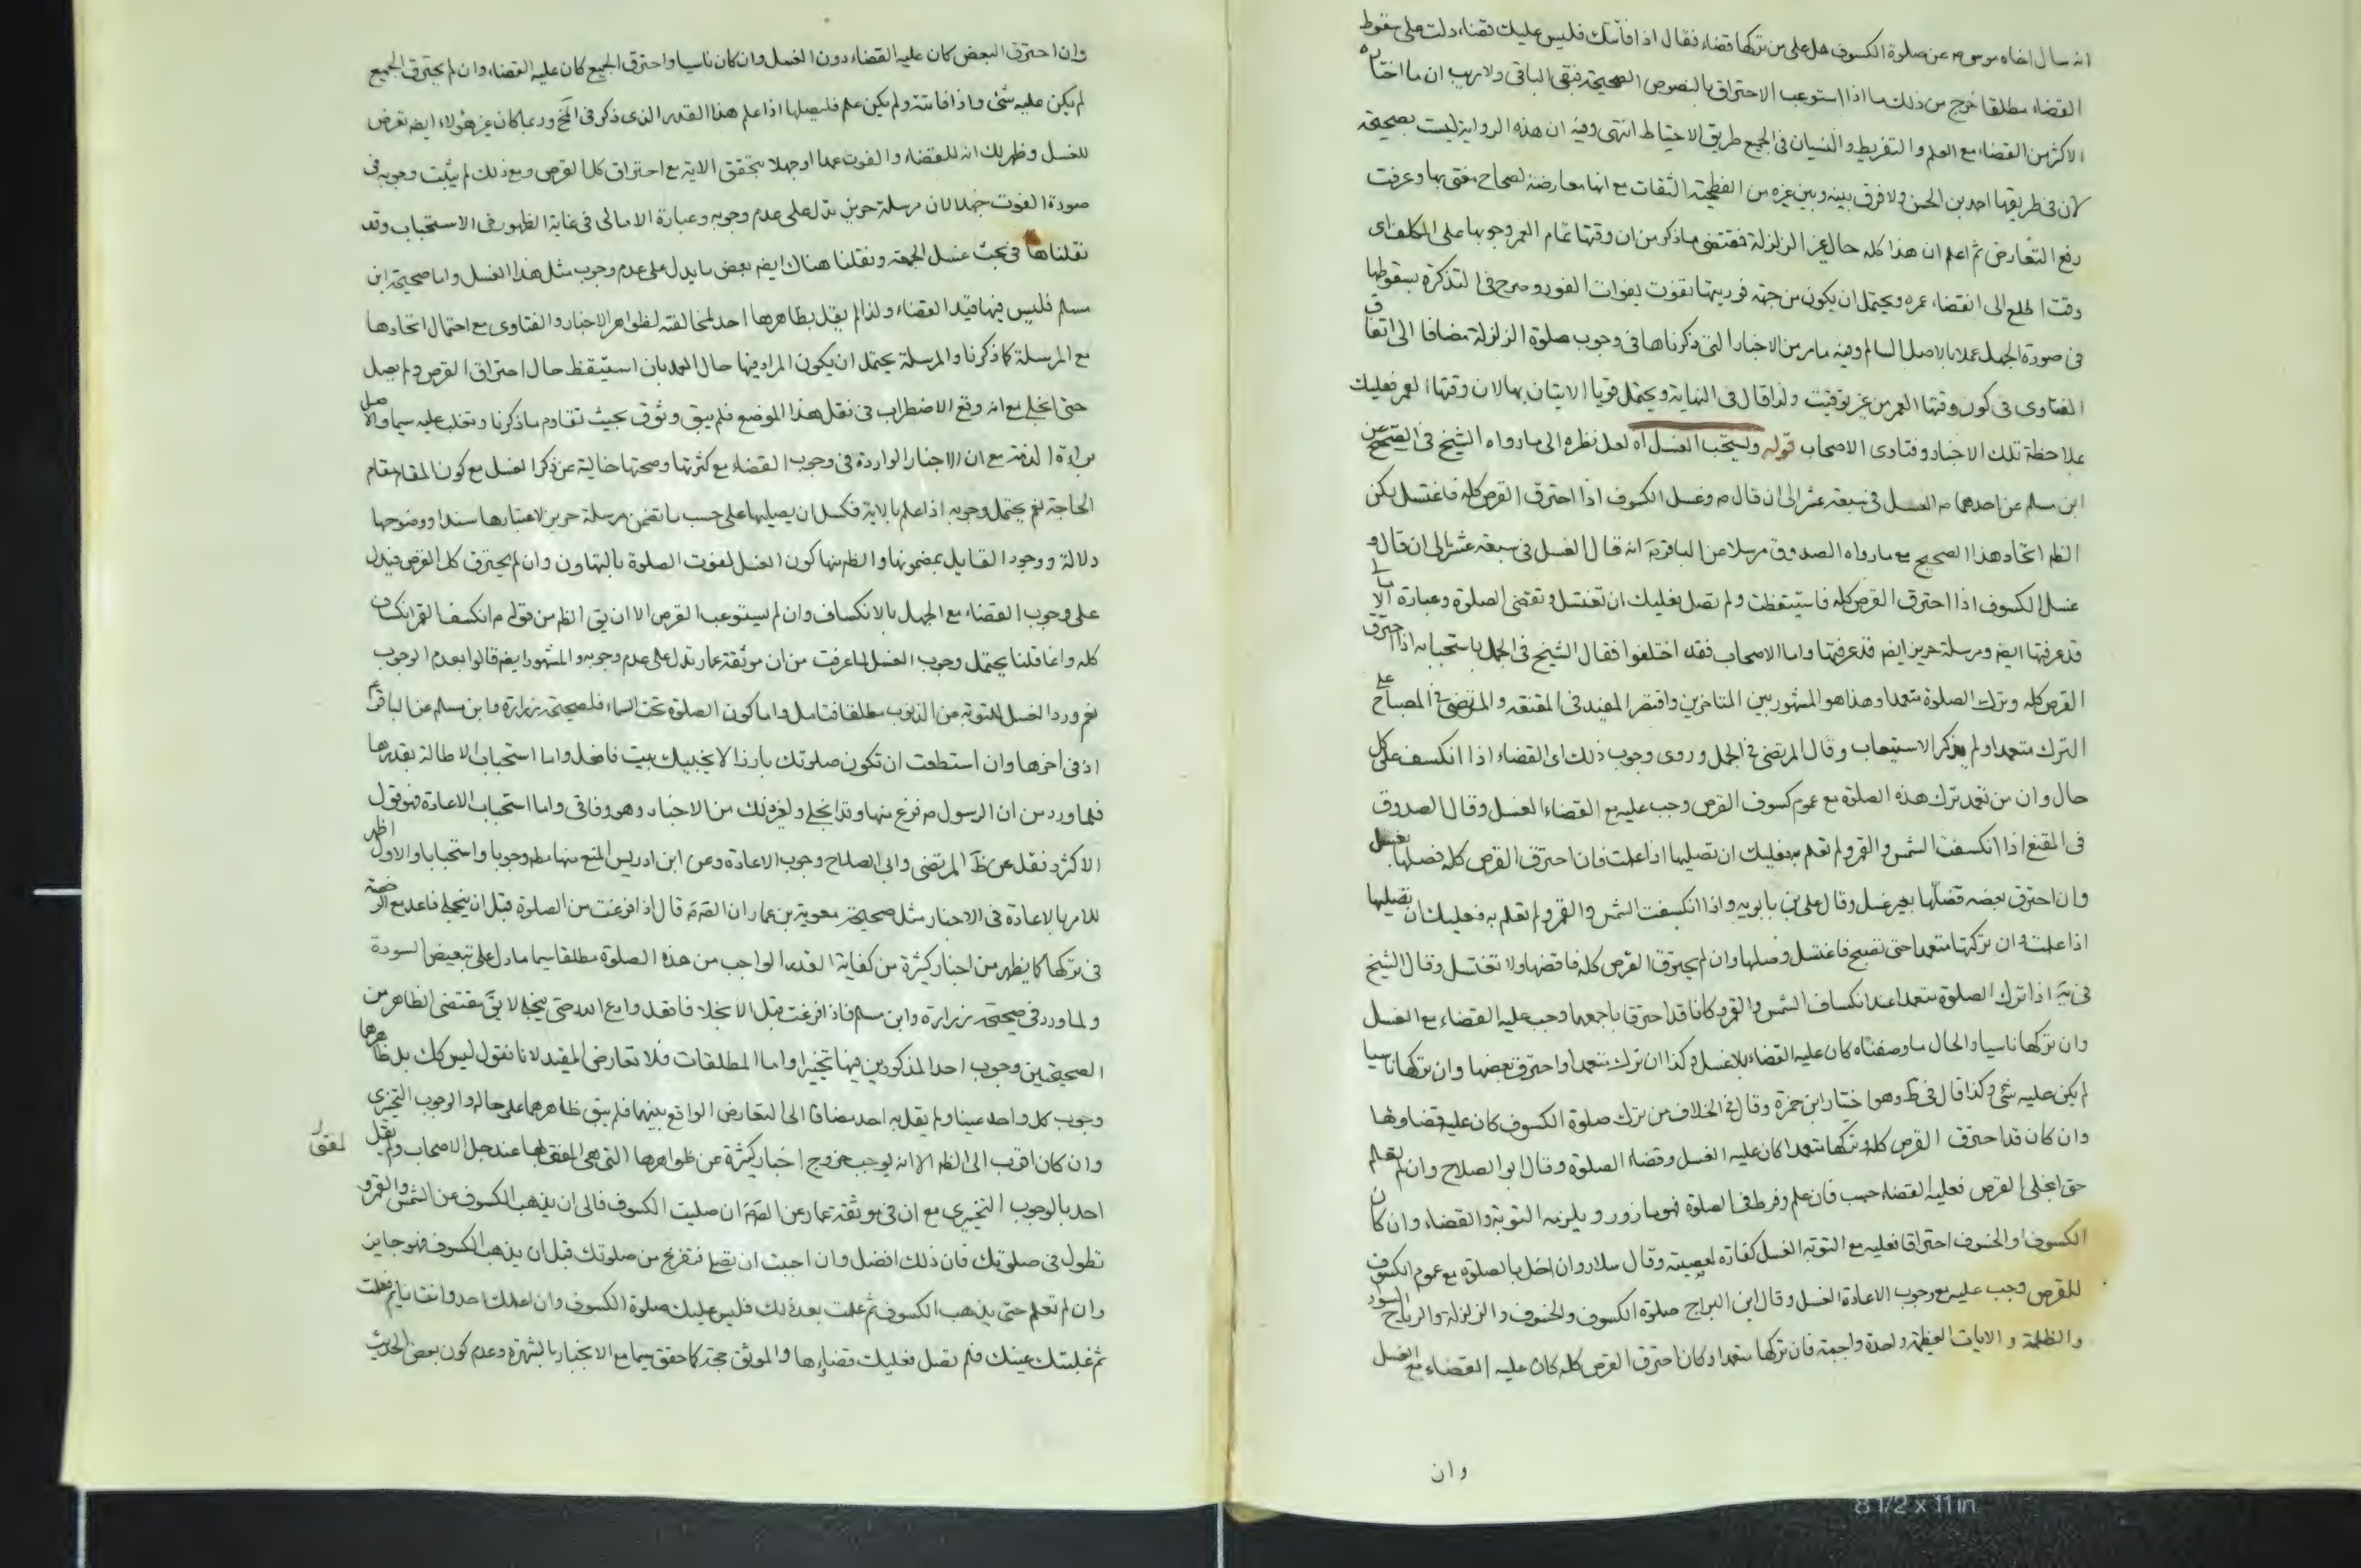 انه سال اخاه موسى م عن صلوة الكسوف هل على من تركها قضاء فقال اذا فاتتك فليس عليك قضاء دلت على سقوط
القضاء مطلقا خرج من ذلك ما اذا استوعب الاحتراق بالنصوص الصحيحة فبقى الباقى ولا ريب ان ما اختاره
الاكثر من القضاء مع العلم والتفريط والنسيان فى الجميع طريق الاحتياط انتهى وفيه ان هذه الرواية ليست بصحيحة
لان فى طريقها احمد بن الحسن ولا فرق بينه وبين غيره من الفطحية الثقات مع انها معارضة لصحاح مفتى بها وعرفت
رفع التعارض ثم اعلم ان هذا كله حال غير الزلزلة فمقتضى ما ذكر من ان وقتها تمام العمر وجوبها على المكلف اى
وقت اطلع الى انقضاء عمره ويحتمل ان يكون من جهة فوريتها تفوت بفوات الفور وصرح فى التذكرة بسقوطها
فى صورة الجهل عملا بالاصل السالم وفيه ما مر من الاخبار التى ذكرناها فى وجوب صلوة الزلزلة مضافا الى اتفاق
الفتاوى فى كون وقتها العمر من غير توقيت ولذا قال فى النهاية ويحتمل قويا الاتيان بها لان وقتها العمر فعليك
بملاحظة تلك الاخبار وفتاوى الاصحاب قوله ويستحب الغسل اه لعل نظره الى ما رواه الشيخ فى الصحيح عن
ابن مسلم عن احدهما م الغسل فى سبعة عشر الى ان قال م وغسل الكسوف اذا احترق القرص كله فاغتسل لكن
الظم اتحاد هذا الصحيح مع ما رواه الصدوق مرسلا عن الباقر م انه قال الغسل فى سبعة عشر الى ان قال و
غسل الكسوف اذا احترق القرص كله فاستيقظت ولم تصل فعليك ان تغتسل وتقضى الصلوة وعبارة
قد عرفتها ايضم ومرسلة حريز ايضم قد عرفتها واما الاصحاب فقد اختلفوا فقال الشيخ فى الجمل باستحبابه اذا احترق
القرص كله وترك الصلوة متعمدا وهذا هو المشهور بين المتاخرين واقتصر المفيد فى المقنعة والمرتضى فى المصباح على
الترك متعمدا ولم يذكر الاستيعاب وقال المرتضى فى الجمل وروى وجوب ذلك اى القضاء اذا انكسف على كل
حال وان من تعمد ترك هذه الصلوة مع عموم كسوف القرص وجب عليه مع القضاء الغسل وقال الصدوق
فى المقنع اذا انكسفت الشمس والقمر ولم تعلم به فعليك ان تصليها اذا علمت فان احترق القرص كله فصلها بغسل
وان احترق بعضه فصلها بغير غسل وقال على بن بابويه واذا انكسفت الشمس والقمر ولم تعلم به فعليك ان تصليها
اذا علمت وان تركتها متعمدا حتى تصبح فاغتسل وصلها وان لم يحترق القرص كله فاقضها ولا تغتسل وقال الشيخ
فى يه اذا ترك الصلوة متعمدا عند انكساف الشمس والقمر وكانا قد احترقا باجمعهما وجب عليه القضاء مع الغسل
وان تركها ناسيا والحال ما وصفناه كان عليه القضاء بلا غسل وكذا ان ترك متعمدا واحترق بعضها وان تركها ناسيا
لم يكن عليه شئ وكذا قال فى ط وهو اختيار ابن حمزة وقال فى الخلاف من ترك صلوة الكسوف كان عليه قضاؤها
وان كان قد احترق القرص كله وتركها متعمدا كان عليه الغسل وقضاء الصلوة وقال ابو الصلاح وان لم يعلم
حتى انجلى القرص فعليه القضاء حسب فان علم وفرط فى الصلوة فهو مازور ويلزمه التوبة والقضاء وان كان
الكسوف او الخسوف احتراقا فعليه مع التوبة الغسل كفارة لمعصيته وقال سلار وان اخل بالصلوة مع عموم الكسوف
للقرص وجب عليه مع وجوب الاعادة الغسل وقال ابن البراج صلوة الكسوف والخسوف والزلزلة والرياح السود
والظلمة والايات العظيمة واحدة واجبة فان تركها متعمدا وكان احترق القرص كله كان عليه القضاء مع الغسل
وان
وان احترق البعض كان عليه القضاء دون الغسل وان كان ناسيا واحترق الجميع كان عليه القضاء وان لم يحترق الجميع
لم يكن عليه شئ واذا فاتته ولم يكن علم فليصلها اذا علم هذا القدر الذى ذكر فى المخ وربما كان غير هؤلاء ايضم تعرض
للغسل وظهر لك انه للقضاء والفوت عمدا او جهلا بتحقق الاية مع احتراق كل القرص ومع ذلك لم يثبت وجوبه فى
صورة الفوت جهلا لان مرسلة حريز تدل على عدم وجوبه وعبارة الامالى فى غاية الظهور فى الاستحباب وقد
نقلناها فى بحث غسل الجمعة ونقلنا هناك ايضم بعض ما يدل على عدم وجوب مثل هذا الغسل واما صحيحة ابن
مسلم فليس فيها قيد القضاء ولذا لم يقل بظاهرها احد لمخالفته لظواهر الاخبار والفتاوى مع احتمال اتحادها
مع المرسلة كما ذكرنا والمرسلة يحتمل ان يكون المراد فيها حال العمد بان استيقظ حال احتراق القرص ولم يصل
حتى انجلى مع انه وقع الاضطراب فى نقل هذا الموضع فلم يبق وثوق بحيث تقاوم ما ذكرنا وتغلب عليه سيما والاصل
براءة الذمة مع ان الاخبار الواردة فى وجوب القضاء مع كثرتها وصحتها خالية عن ذكر الغسل مع كون المقام مقام
الحاجة نعم يحتمل وجوبه اذا علم بالاية فكسل ان يصليها على حسب ما تضمن مرسلة حريز لاعتبارها سندا ووضوحها
دلالة ووجود القايل بمضمونها والظم منها كون الغسل لفوت الصلوة بالتهاون وان لم يحترق كل القرص فيدل
على وجوب القضاء مع الجهل بالانكساف وان لم يستوعب القرص الا ان يق الظم من قوله م انكسف القمر انكساف
كله وانما قلنا يحتمل وجوب الغسل لما عرفت من ان موثقة عمار تدل على عدم وجوبه والمشهور ايضم قالوا بعدم الوجوب
نعم ورد الغسل للتوبة من الذنوب مطلقا فتامل واما كون الصلوة تحت السماء فلصحيحة زرارة وابن مسلم عن الباقر م
اذ فى اخرها وان استطعت ان تكون صلوتك بارزا لا يجنبك بيت فافعل واما استحباب الاطالة بقدرها
فلما ورد من ان الرسول م فرغ منها وقد انجلى ولغير ذلك من الاخبار وهو وفاقى واما استحباب الاعادة فهو قول
الاكثر ونقل عن ظ المرتضى وابى الصلاح وجوب الاعادة وعن ابن ادريس المنع منها مطم وجوبا واستحبابا والاول اظهر
للامر بالاعادة فى الاخبار مثل صحيحة معوية بن عمار ان الصم م قال اذا فرغت من الصلوة قبل ان ينجلى فاعد مع الرخصة
فى تركها كما يظهر من اخبار كثيرة من كفاية القدر الواجب من هذه الصلوة مطلقا سيما ما دل على تبعيض السورة
ولما ورد فى صحيحة زرارة وابن مسلم فاذا فرغت قبل الانجلاء فاقعد وادع الله حتى ينجلى لا يق مقتضى الظاهر من
الصحيحتين وجوب احد المذكورين فيها تخييرا واما المطلقات فلا تعارض المقيد لانا نقول ليس كك بل ظاهرها
وجوب كل واحد عينا ولم يقل به احد مضافا الى التعارض الواقع بينهما فلم يبق ظاهرهما على حاله والوجوب التخييرى
وان كان اقرب الى الظم الا انه يوجب خروج اخبار كثيرة عن ظواهرها التى هى المفتى بها عند جل الاصحاب ولم يقل
احد بالوجوب التخييرى مع ان فى موثقة عمار عن الصم م ان صليت الكسوف فالى ان يذهب الكسوف عن الشمس والقمر و
تطول فى صلوتك فان ذلك افضل وان احببت ان تصلى فتفرغ من صلوتك قبل ان يذهب الكسوف فهو جايز
وان لم تعلم حتى يذهب الكسوف ثم علمت بعد ذلك فليس عليك صلوة الكسوف وان اعلمك احد وانت نايم فعلمت
ثم غلبتك عينك فلم تصل فعليك قضاؤها والموثق حجة كما حقق سيما مع الانجبار بالشهرة وعدم كون بعض الحديث